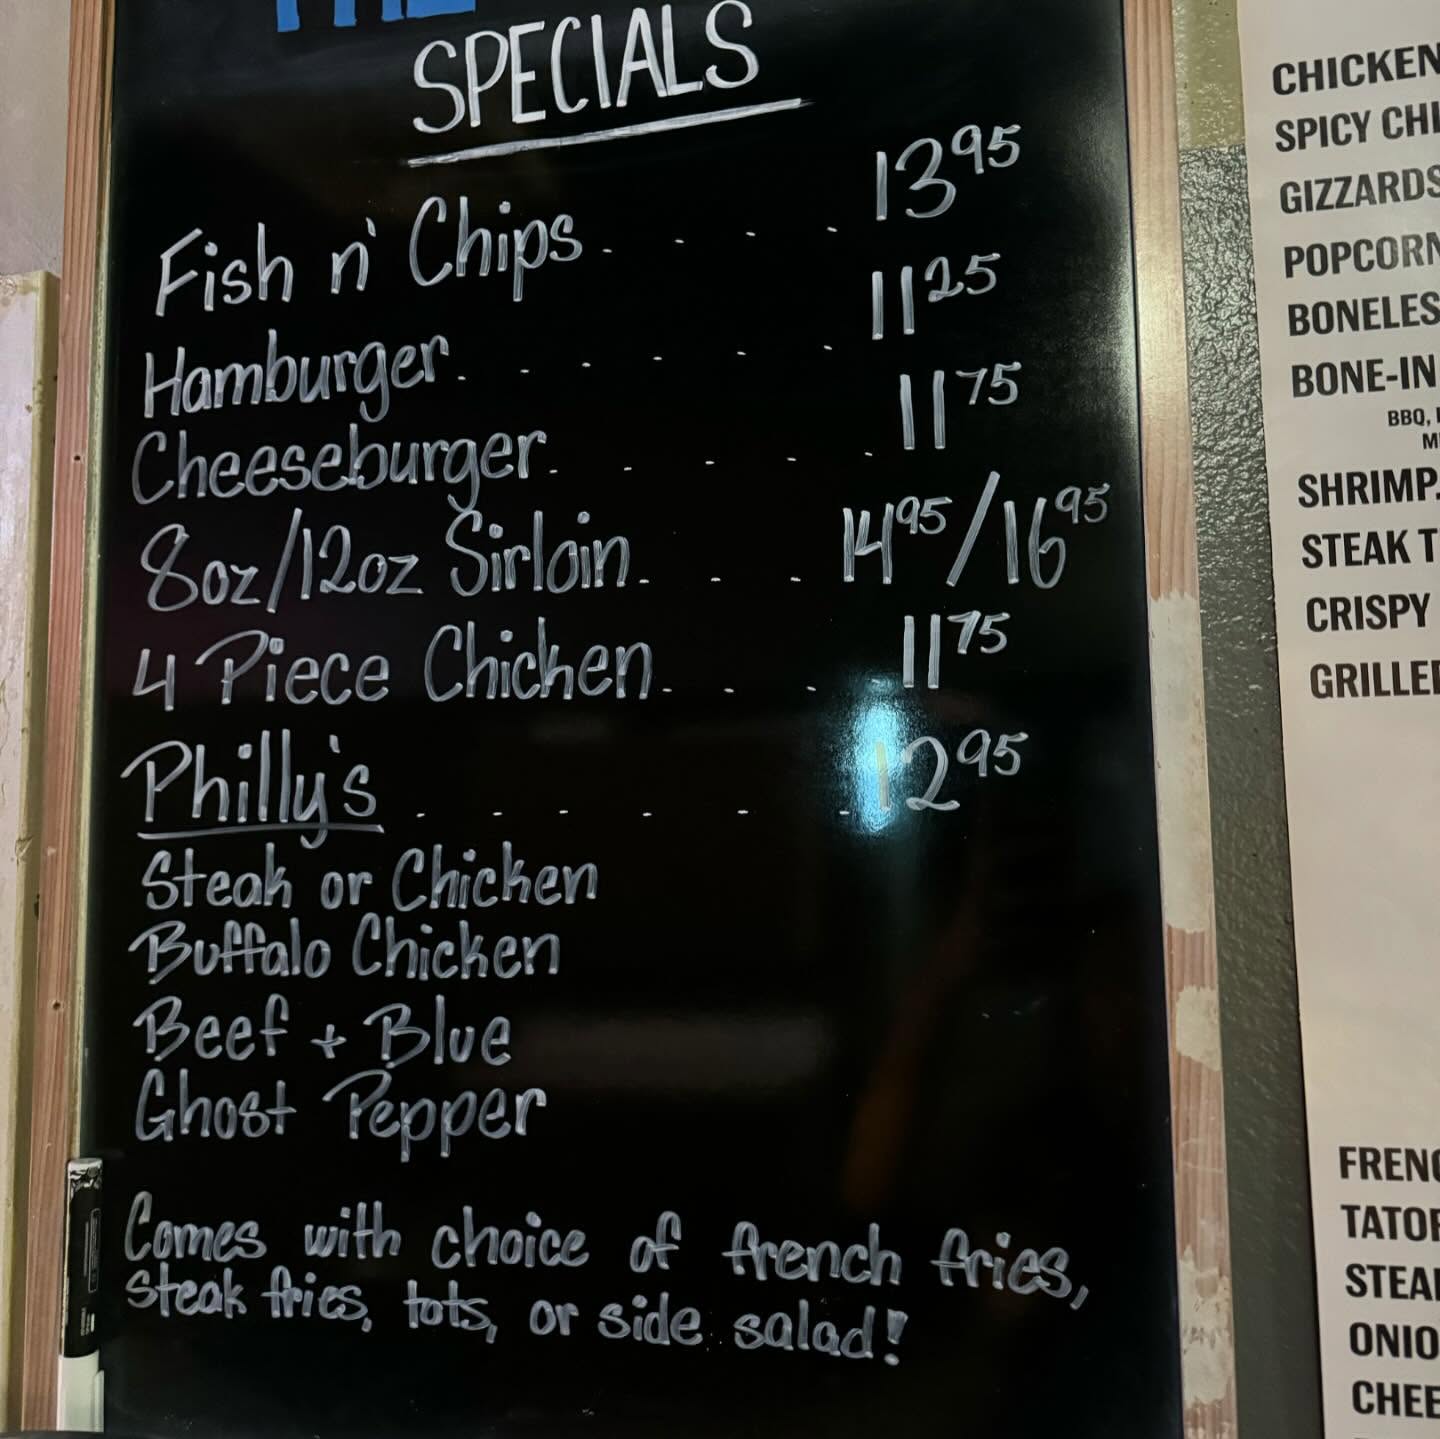 SPECIALS
Fish n' Chips . . . . 13 95
Hamburger . . . . . . 11 25
Cheeseburger . . . . . 11 75
8oz/12oz Sirloin . . . 14 95 / 16 95
4 Piece Chicken . . . . 11 75
Philly's . . . . . . . 12 95
Steak or Chicken
Buffalo Chicken
Beef + Blue
Ghost Pepper
Comes with choice of french fries,
steak fries, tots, or side salad!
CHICKEN
SPICY
GIZZARDS
POPCORN
BONE-IN
BBQ,
SHRIMP.
STEAK
CRISPY